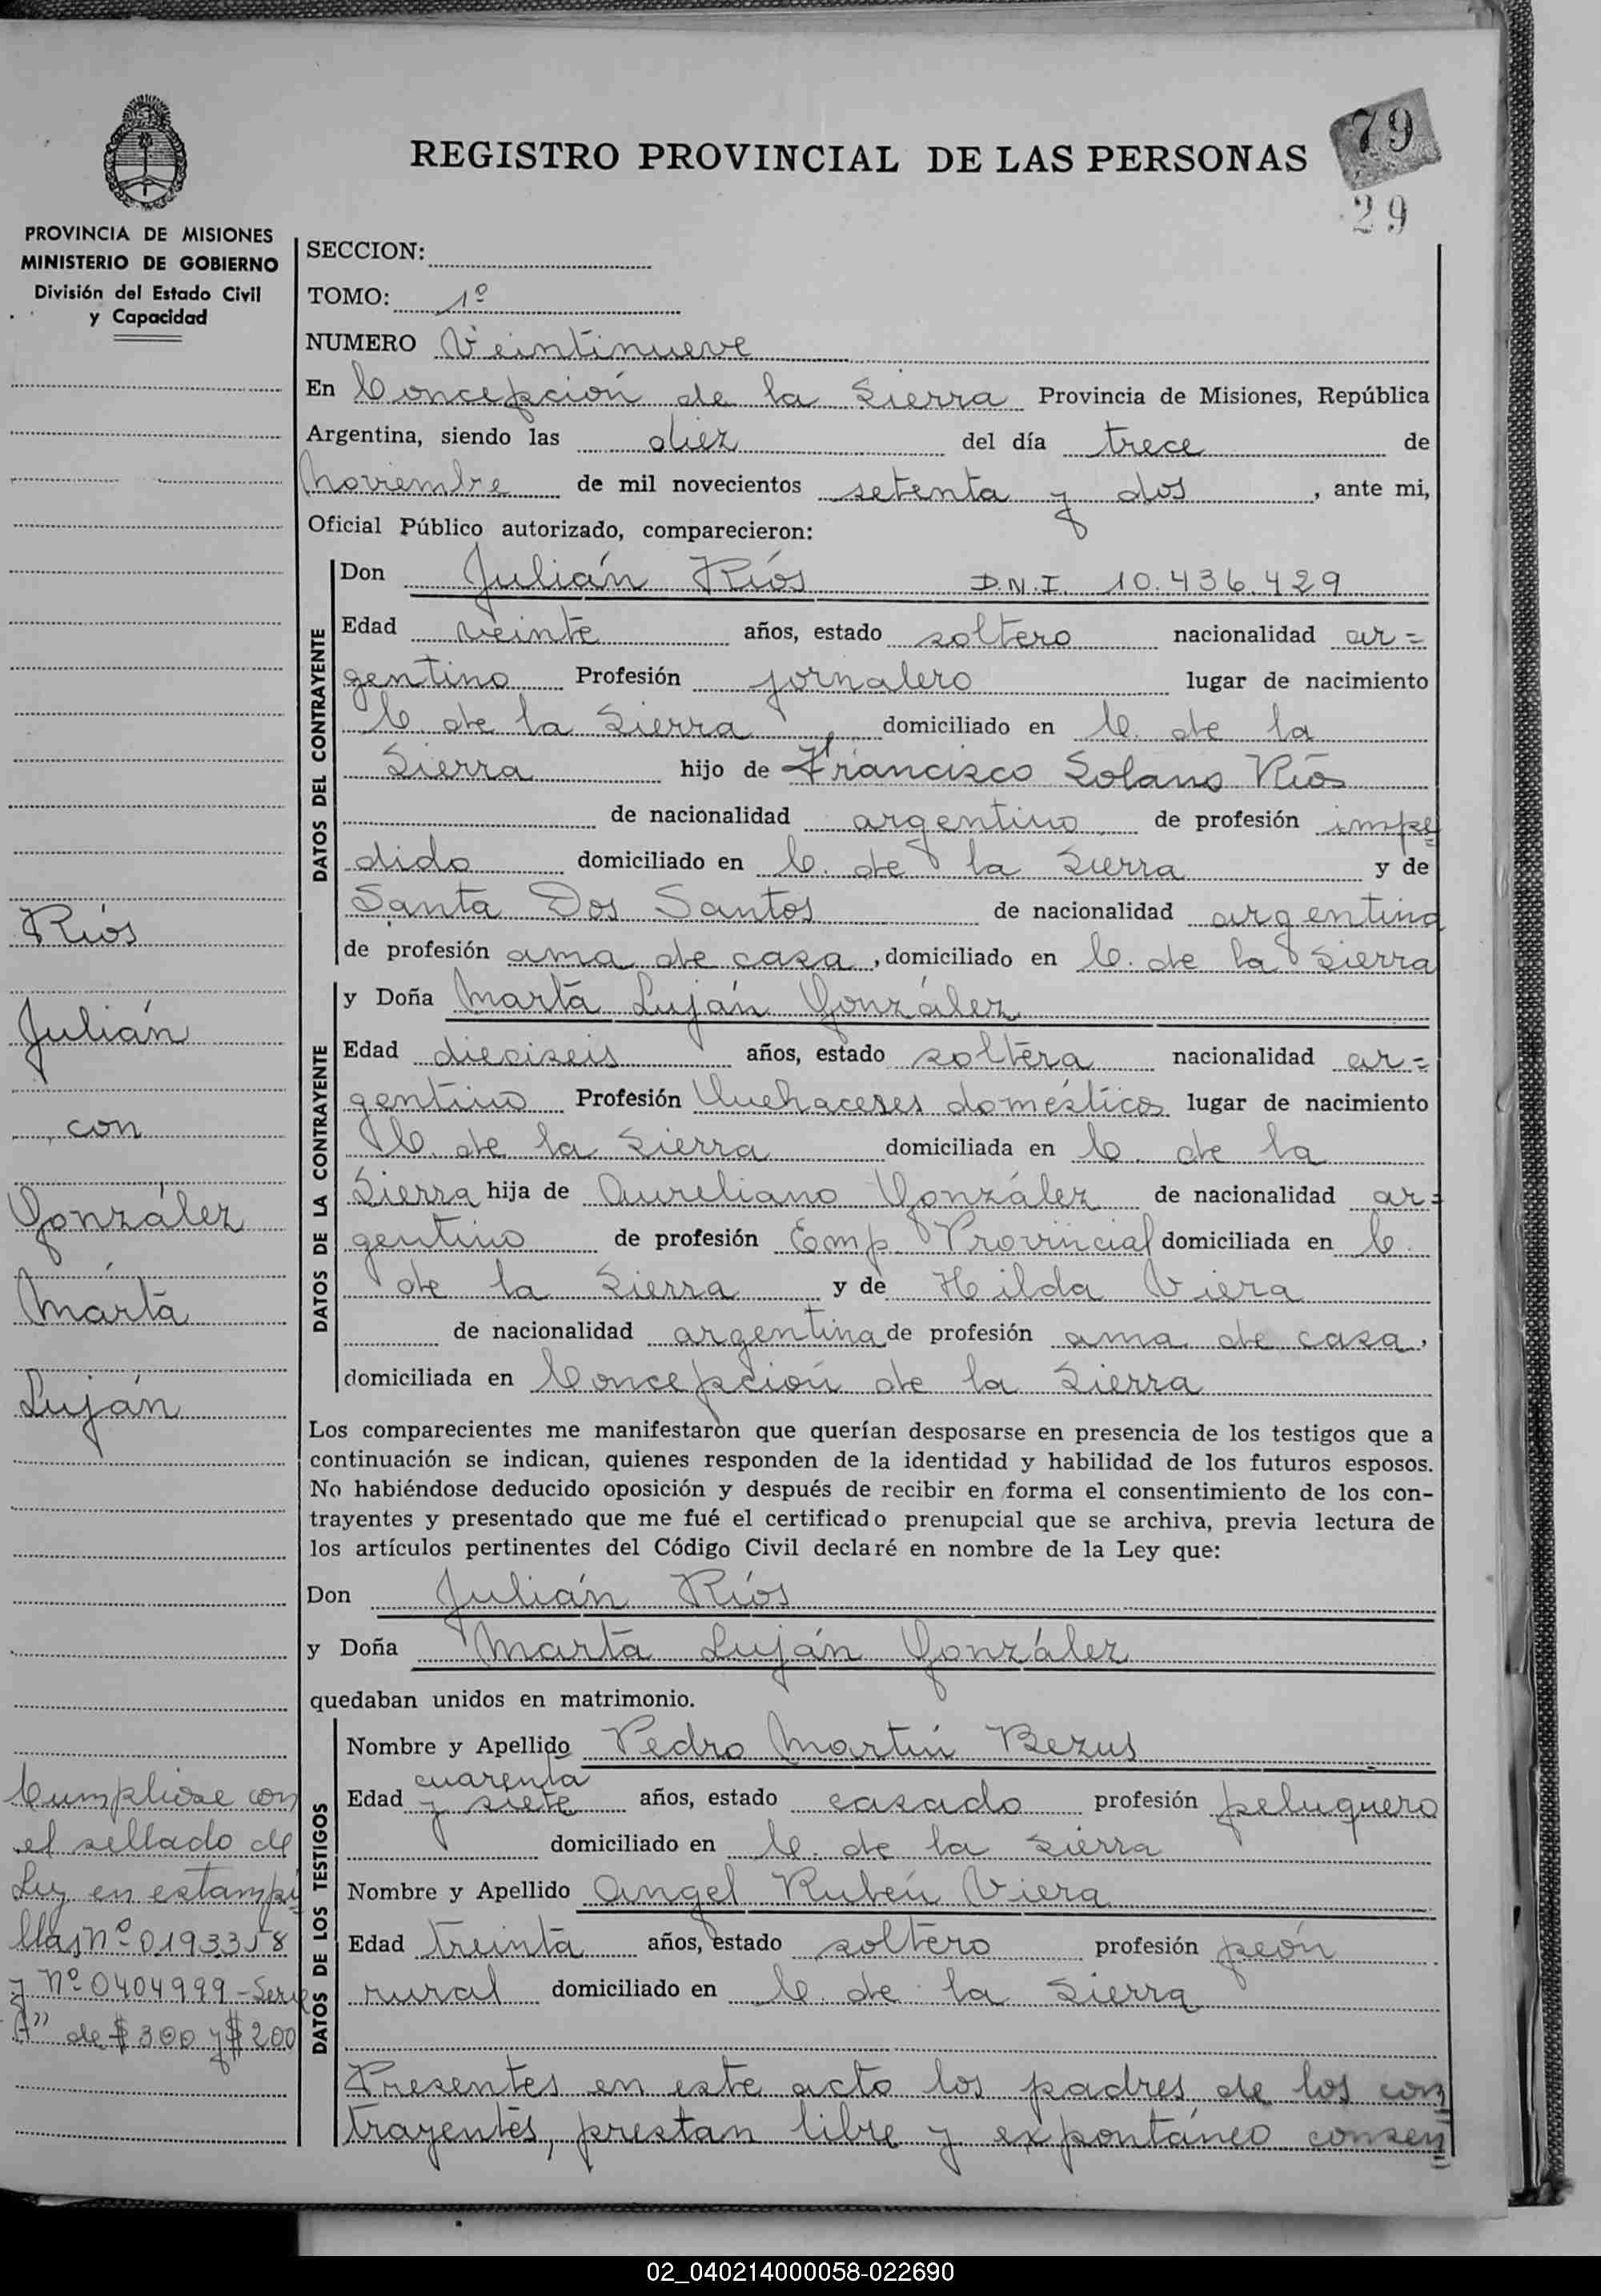 REGISTRO PROVINCIAL DE LAS PERSONAS
79
29
PROVINCIA DE MISIONES
MINISTERIO DE GOBIERNO
División del Estado Civil
y Capacidad
SECCION:
TOMO: 1º
NUMERO Veintinueve
En Concepción de la Sierra Provincia de Misiones, República
Argentina, siendo las diez del día trece de
Noviembre de mil novecientos setenta y dos, ante mi,
Oficial Público autorizado, comparecieron:
DATOS DEL CONTRAYENTE
Don Julián Ríos D.N.I. 10.436.429
Edad veinte años, estado soltero nacionalidad ar=
gentino Profesión jornalero lugar de nacimiento
C. de la Sierra domiciliado en C. de la
Sierra hijo de Francisco Solano Ríos
de nacionalidad argentino de profesión impe
dido domiciliado en C. de la Sierra y de
Santa Dos Santos de nacionalidad argentina
de profesión ama de casa, domiciliado en C. de la Sierra
DATOS DE LA CONTRAYENTE
y Doña Marta Luján González
Edad dieciseis años, estado soltera nacionalidad ar=
gentino Profesión Quehaceres domésticos lugar de nacimiento
C. de la Sierra domiciliada en C. de la
Sierra hija de Aureliano González de nacionalidad ar=
gentino de profesión Emp. Provincial domiciliada en C.
de la Sierra y de Hilda Viera
de nacionalidad argentina de profesión ama de casa,
domiciliada en Concepción de la Sierra
Los comparecientes me manifestaron que querían desposarse en presencia de los testigos que a
continuación se indican, quienes responden de la identidad y habilidad de los futuros esposos.
No habiéndose deducido oposición y después de recibir en forma el consentimiento de los con-
trayentes y presentado que me fué el certificado prenupcial que se archiva, previa lectura de
los artículos pertinentes del Código Civil declaré en nombre de la Ley que:
Don Julián Ríos
y Doña Marta Luján González
quedaban unidos en matrimonio.
DATOS DE LOS TESTIGOS
Nombre y Apellido Pedro Martín Bezus
Edad cuarenta y siete años, estado casado profesión peluquero
domiciliado en C. de la Sierra
Nombre y Apellido Angel Rubén Viera
Edad treinta años, estado soltero profesión peón
rural domiciliado en C. de la Sierra
Presentes en este acto los padres de los con
trayentes, prestan libre y expontáneo consen
Ríos
Julián
con
González
Marta
Luján
Cumpliose con
el sellado de
Ley en estampi
llas Nº 0193358
y Nº 0404999 - Serie
A" de $ 300 y $ 200
02_040214000058-022690